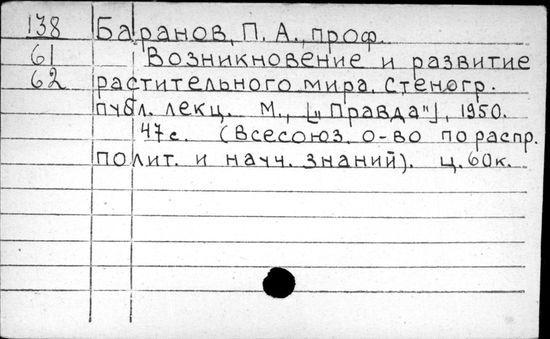 138 Баранов, П. А., проф.
61 Возникновение и развитие
62 растительного мира. Стеногр.
публ. лекц. М., [„Правда"], 1950.
47с. (Всесоюз. о-во по распр.
полит. и науч. знаний). ц. 60к.